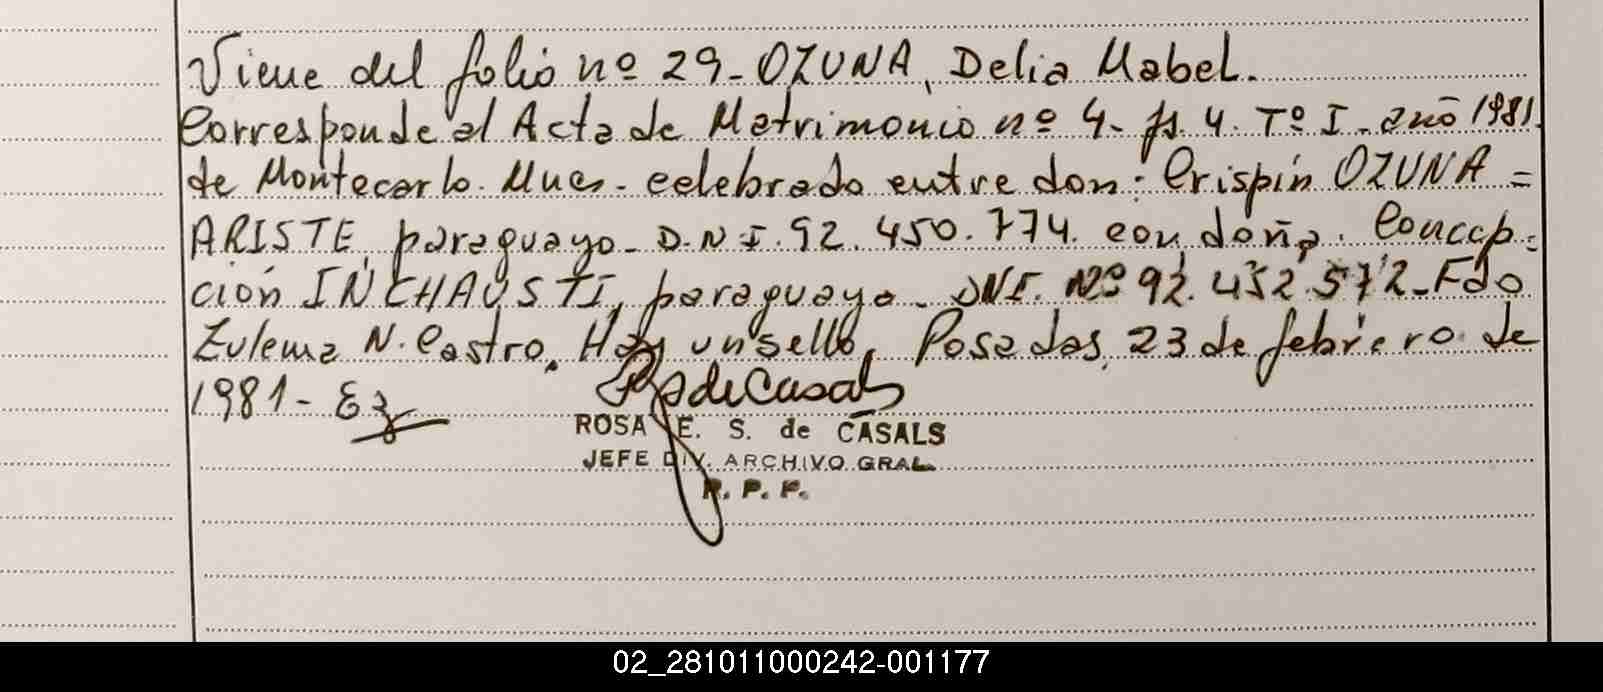 Viene del folio nº 29_OZUNA, Delia Mabel.
Corresponde al Acta de Matrimonio nº 4- fs. 4. Tº I_ año 1981.
de Montecarlo. Mnes- celebrado entre don: Crispín OZUNA =
ARISTE, paraguayo_ D.N.I. 92.450.774. con doña. Concep-
ción INCHAUSTI, paraguaya_ DNI. Nº 92.452.572_Fdo
Zulema N. Castro. Hay un sello, Posadas, 23 de febrero de
1981-
ROSA E. S. de CASALS
JEFE DIV. ARCHIVO GRAL.
R. P. P.
02_281011000242-001177